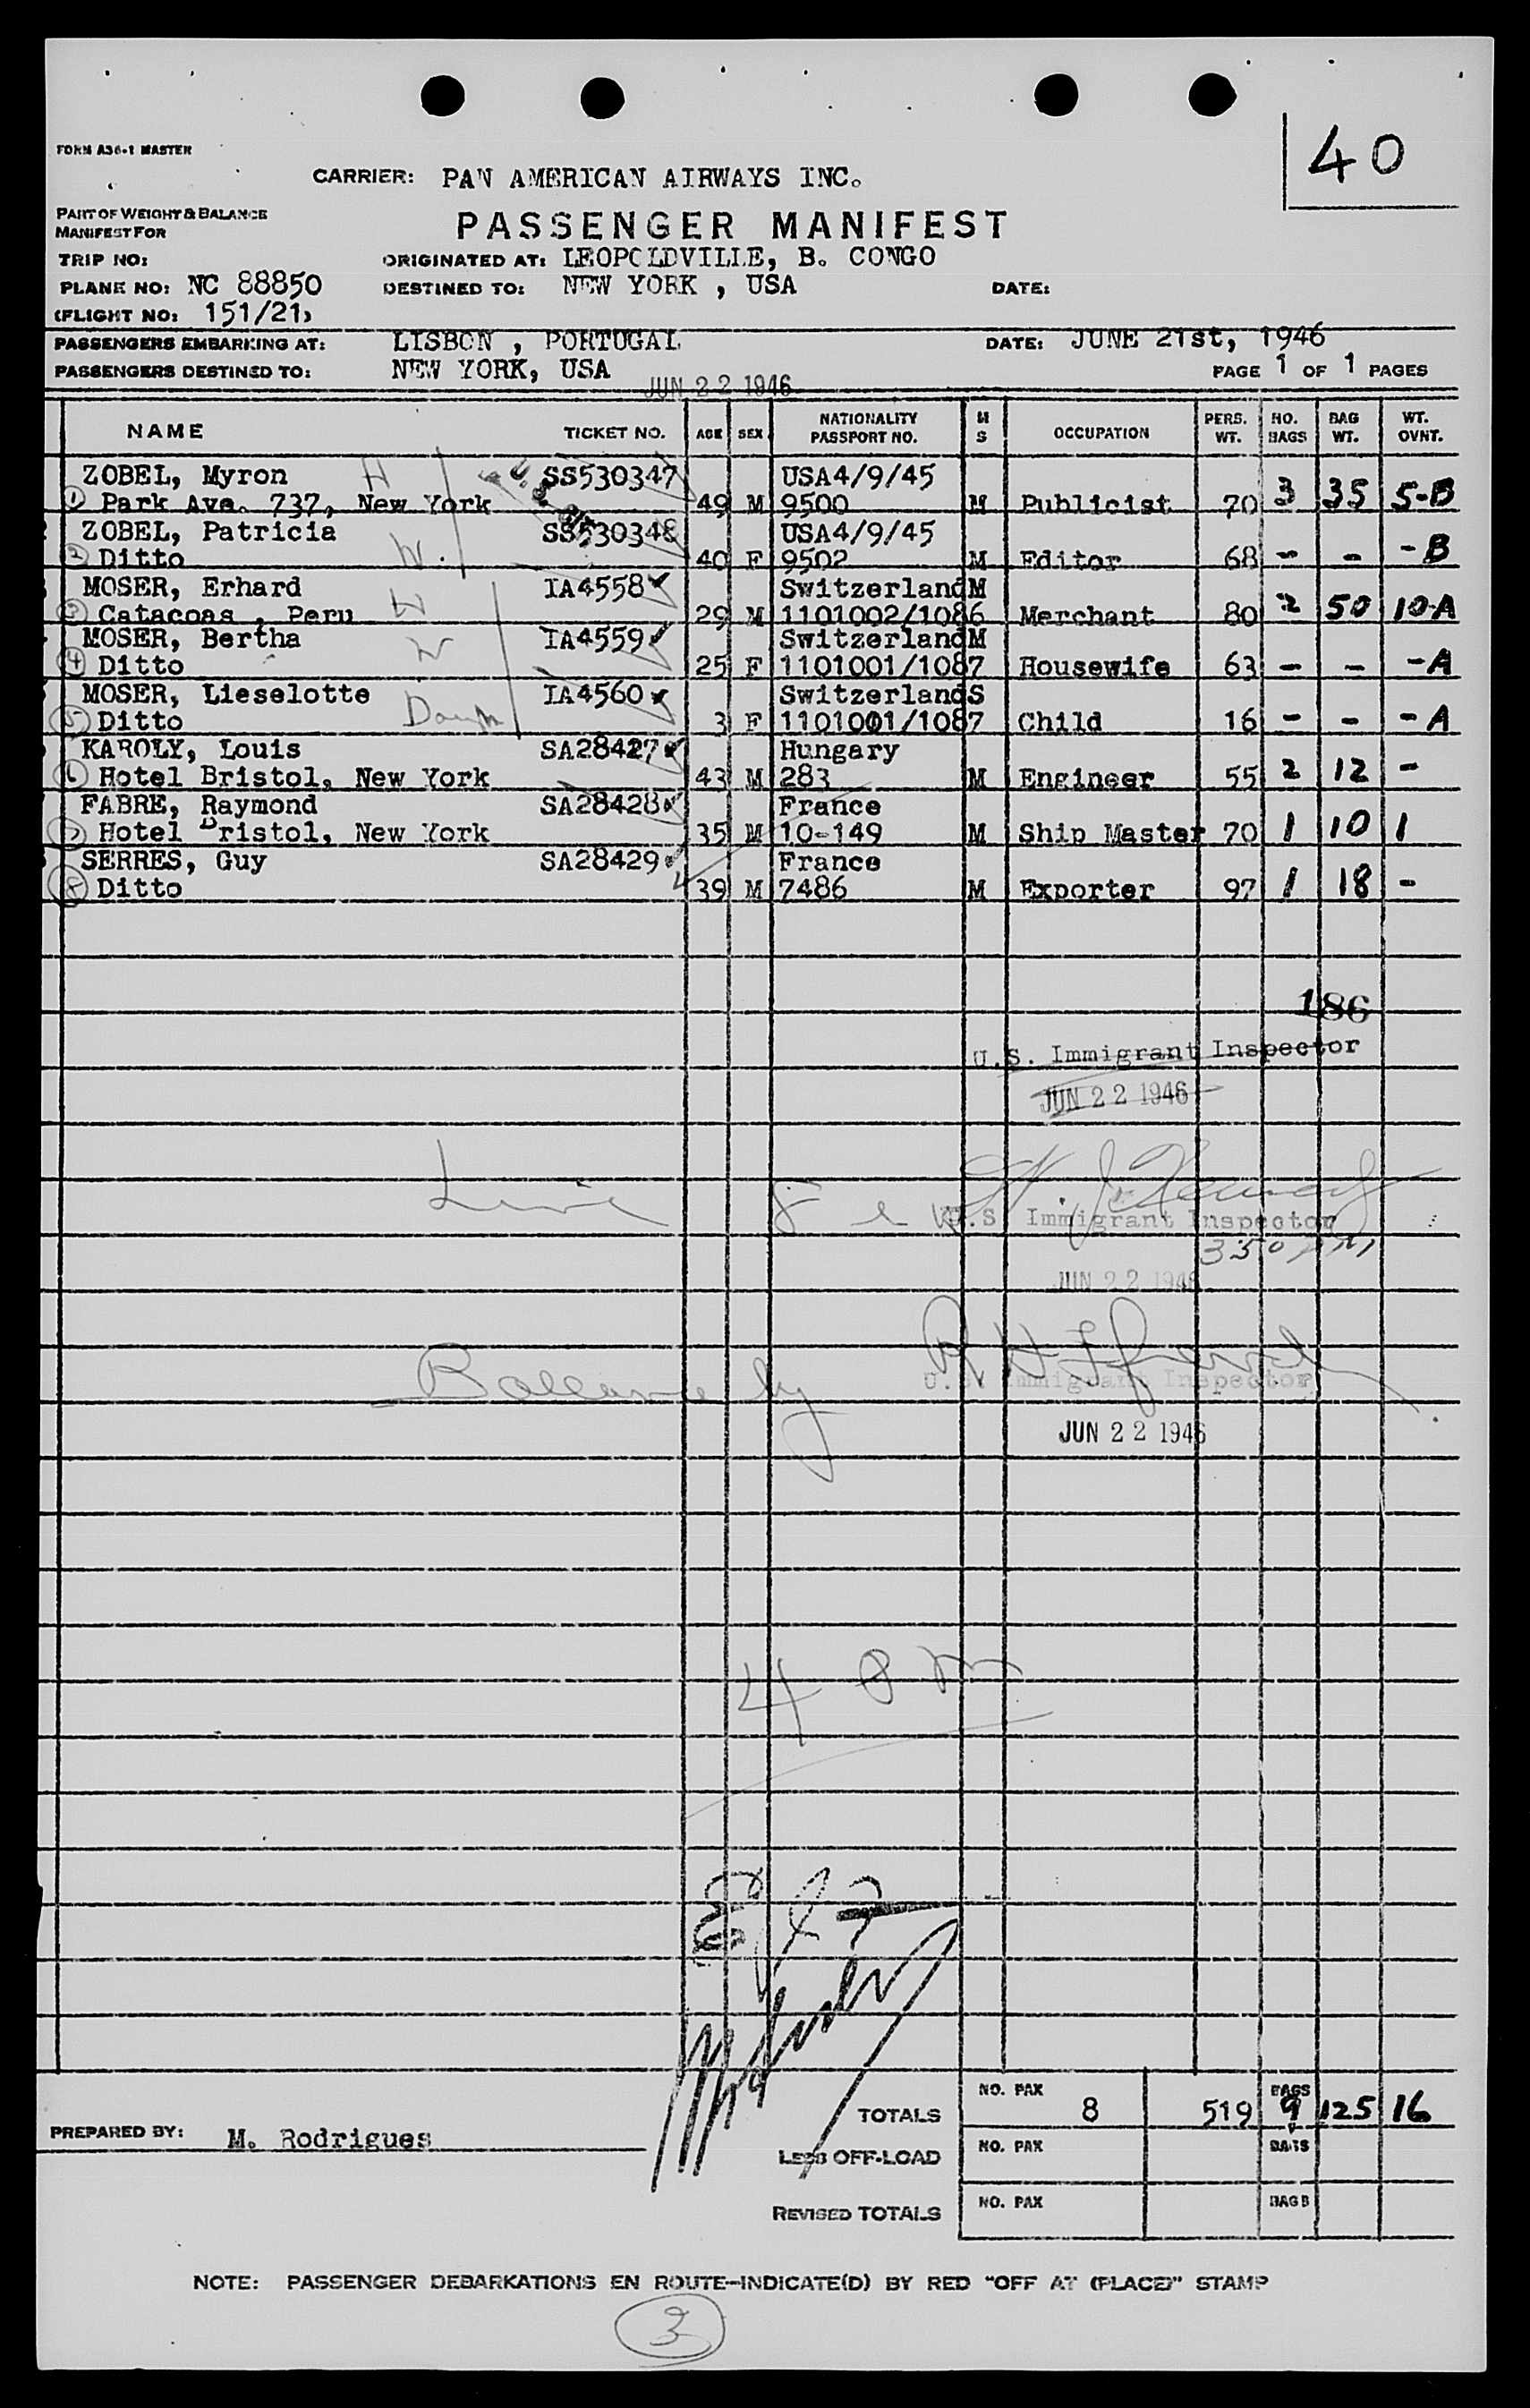 40
FORM A36-1 MASTER
CARRIER: PAN AMERICAN AIRWAYS INC.
PART OF WEIGHT & BALANCE
MANIFEST FOR
PASSENGER MANIFEST
TRIP NO:
ORIGINATED AT: LEOPOLDVILLE, B. CONGO
PLANE NO: NC 88850
DESTINED TO: NEW YORK , USA
DATE:
(FLIGHT NO: 151/21)
PASSENGERS EMBARKING AT: LISBON , PORTUGAL
DATE: JUNE 21st, 1946
PASSENGERS DESTINED TO: NEW YORK, USA
PAGE 1 OF 1 PAGES
JUN 22 1946
NAME TICKET NO. AGE SEX NATIONALITY PASSPORT NO. M S OCCUPATION PERS. WT. NO. BAGS BAG WT. WT. OVNT.
ZOBEL, Myron H SS530347 USA4/9/45
1 Park Ave. 737, New York 49 M 9500 M Publicist 70 3 35 5-B
ZOBEL, Patricia W. SS530348 USA4/9/45
2 Ditto 40 F 9502 M Editor 68 - - -B
MOSER, Erhard H IA4558 Switzerland M
3 Catacoas , Peru 29 M 1101002/1086 Merchant 80 2 50 10-A
MOSER, Bertha W IA4559 Switzerland M
4 Ditto 25 F 1101001/1087 Housewife 63 - - -A
MOSER, Lieselotte IA4560 Switzerland S
5 Ditto 3 F 1101001/1087 Child 16 - - -A
KAROLY, Louis SA28427 Hungary
6 Hotel Bristol, New York 43 M 283 M Engineer 55 2 12 -
FABRE, Raymond SA28428 France
7 Hotel Bristol, New York 35 M 10-149 M Ship Master 70 1 10 1
SERRES, Guy SA28429 France
8 Ditto 39 M 7486 M Exporter 97 1 18 -
186
U.S. Immigrant Inspector
JUN 22 1946
U.S Immigrant Inspector
JUN 22 1946
by
U.S. Immigrant Inspector
JUN 22 1946
TOTALS NO. PAX 8 519 BAGS 9 125 16
PREPARED BY: M. Rodrigues
LESS OFF-LOAD NO. PAX BAGS
REVISED TOTALS NO. PAX BAGS
NOTE: PASSENGER DEBARKATIONS EN ROUTE-INDICATE(D) BY RED "OFF AT (PLACE)" STAMP
3